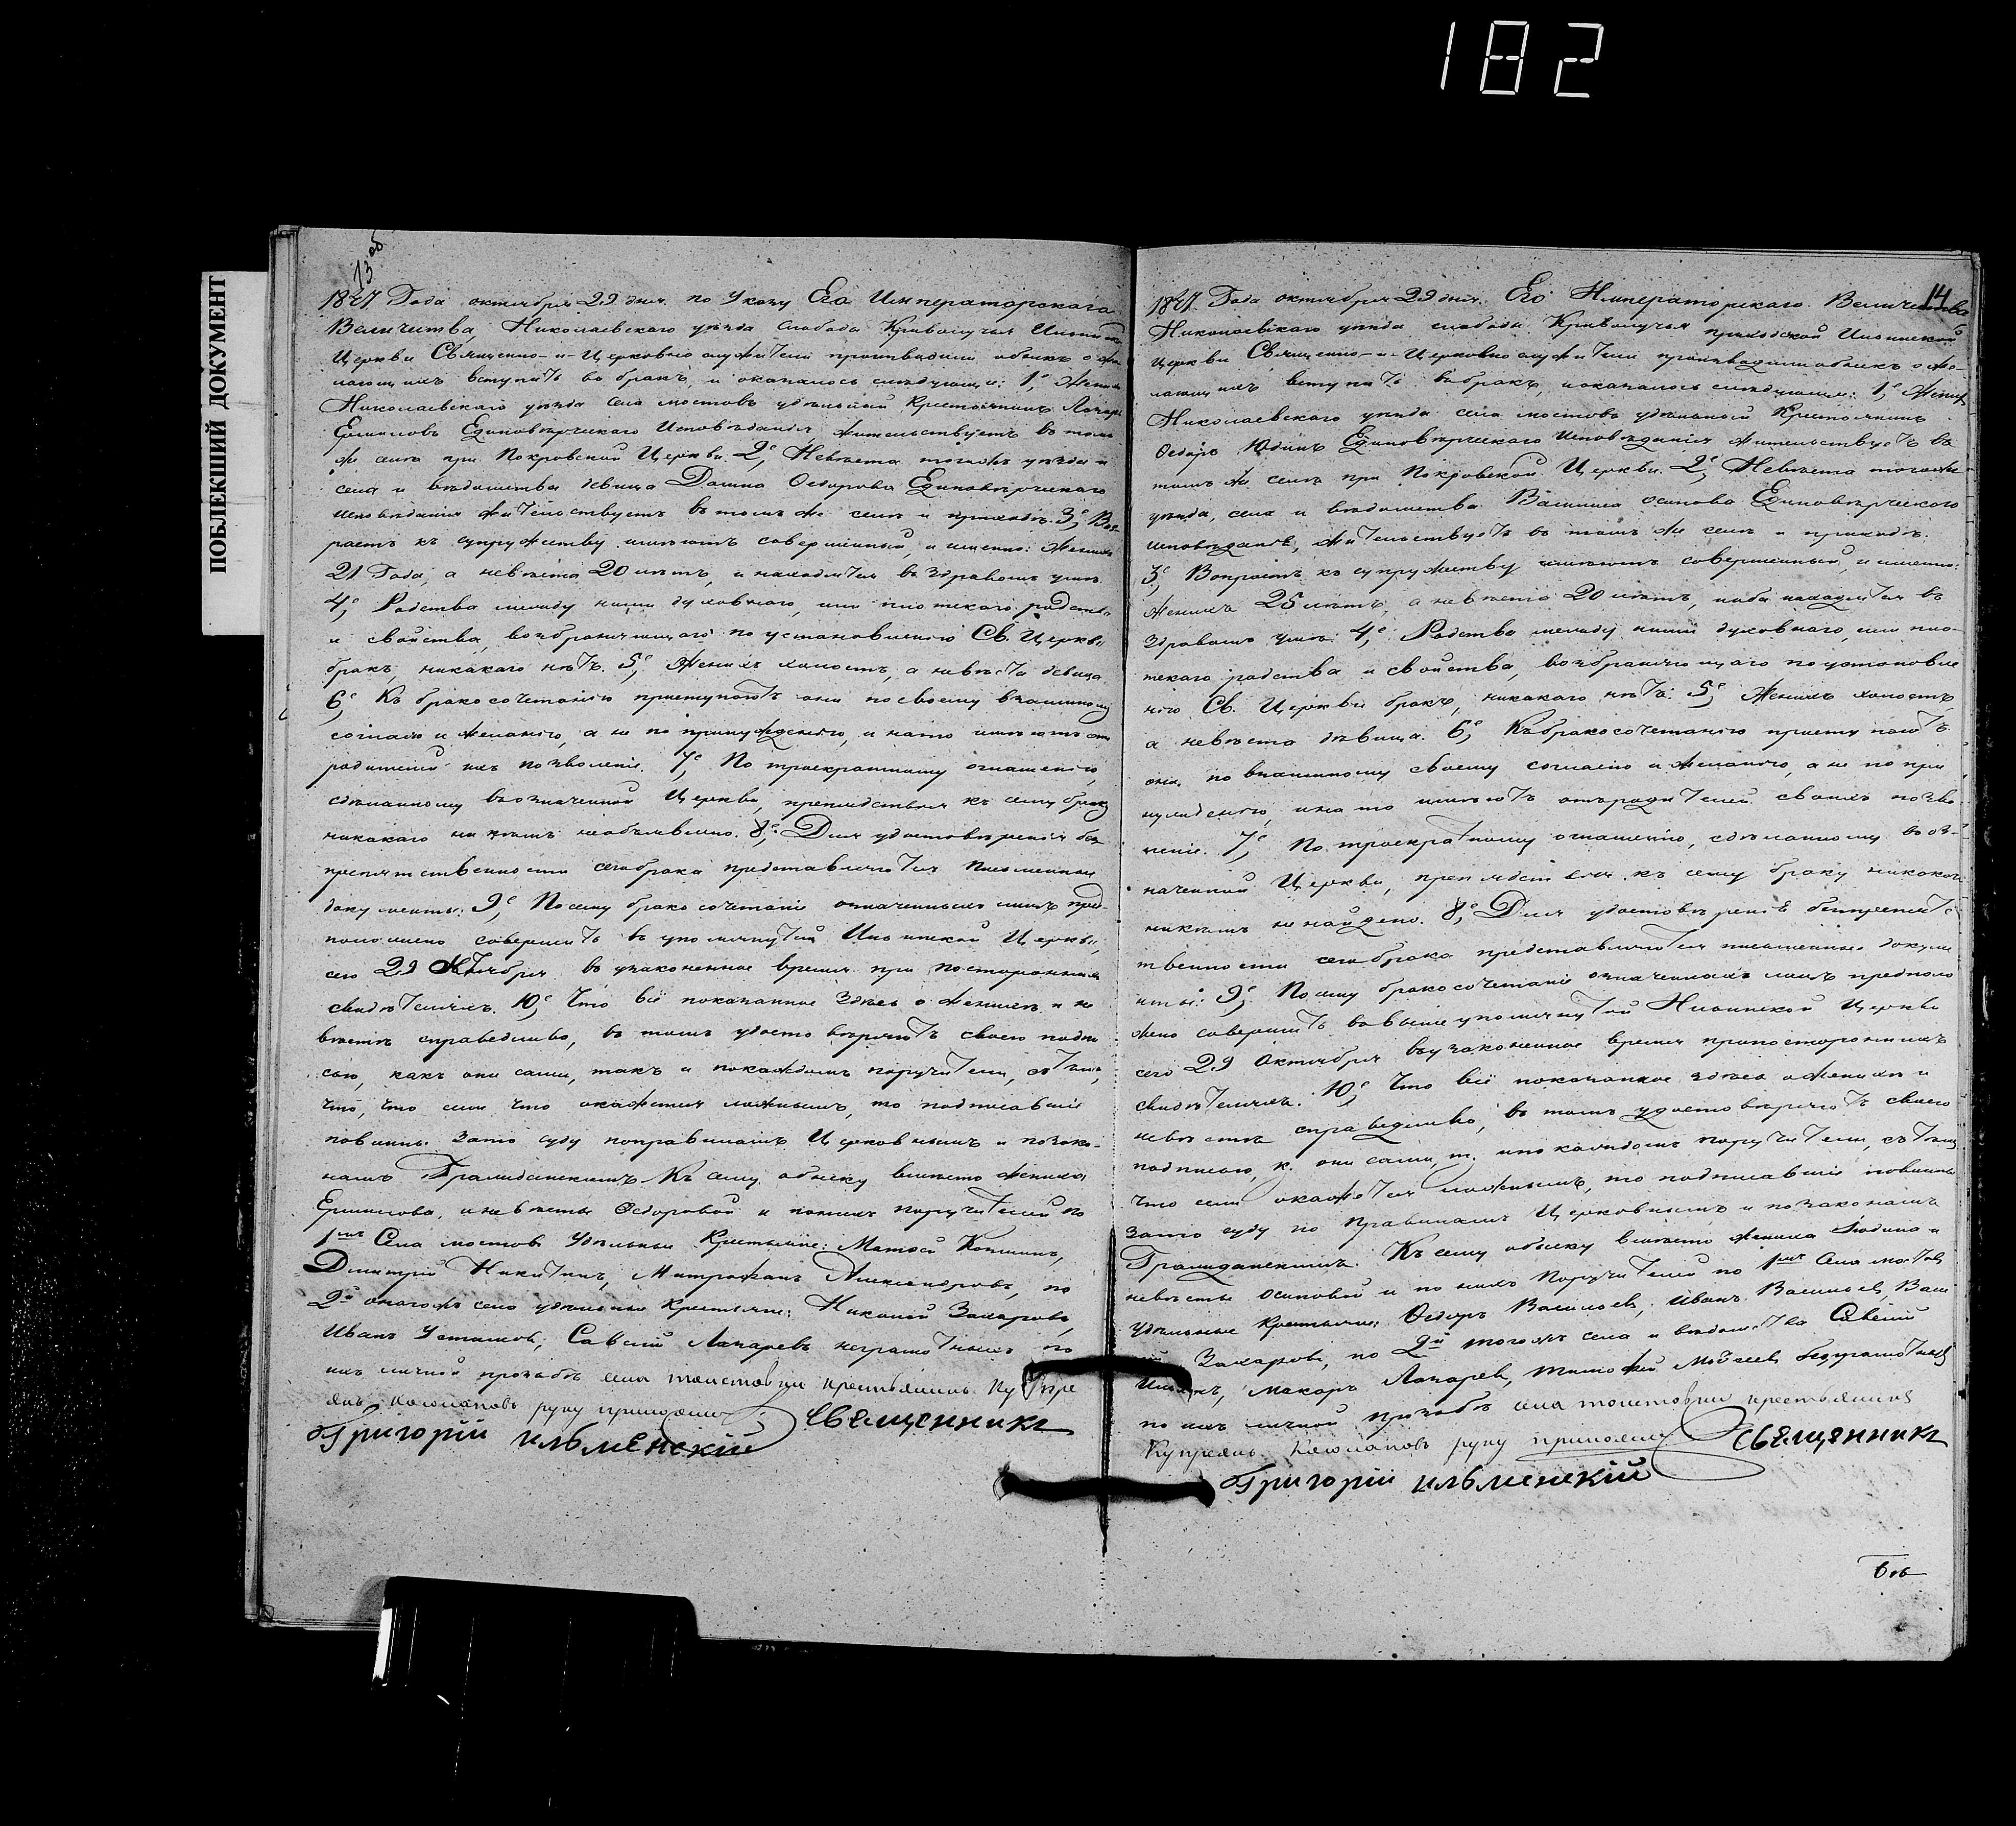 182
ПОБЛЕКШИЙ ДОКУМЕНТ
13 об
1847 Года октября 29 дня по Указу Его Императорскаго
Величества, Николаевскаго уезда слобода Криволучья
Церкви Священно-и-Церковно служители производили обыск о же-
лающих вступить в брак, и оказалось следующее: 1е, Жених
Николаевскаго уезда села Мостов удельный Крестьянин Лазарь
Ермилов Единоверческаго Исповедания жительствует в том
же селе при Покровской Церкви. 2е, Невеста тогож уезда и
села и ведомства девица Домна Федорова Единоверческаго
исповедания жительствует в том же селе и приходе. 3е, Воз-
раст к супружеству имеют совершенный, и именно: Жених
21 Года, а невеста 20 лет, и находятся в здравом уме.
4е, Родства между ними духовного, или плотскаго родства
и свойства, возбраняющаго по установлению Св. Церкви
брак, никакаго нет. 5е, Жених холост, а невеста девица
6е, К бракосочетанию приступают они по своему взаимному
согласию и желанию, а не по принуждению, и на то имеют от
родителей их позволение. 7е, По троекратному оглашению,
сделанному в означенной Церкви, препядствия к сему браку
никакаго ни кем необъявлено. 8е, Для удостоверения без
препятственности сего брака представляются письменныи
документы. 9е, По сему бракосочетание означенных лиц пред-
положено совершить в упомянутой Ильинской Церкви,
сего 29 Октября в узаконенное время при посторонних
свидетелях. 10е, Что всё показанное здесь о женихе и не
весте справедливо, в том удостоверяют своею подпи
сью, как они сами, так и по каждом поручители, с тем,
что, что если что окажется ложным, то подписавшие
повинны за то суду по правилам Церковным и по зако-
нам Гражданским. К сему обыску вместо жениха
Ермилова, и невесты Федоровой и по них поручителей по
1м Села Мостов Удельныя Крестьяне: Матвей Копшин,
Дмитрий Никитин, Митрофан Александров, по
2й онагож села удельныя крестьяне: Никанор Захаров,
Иван Устимов, Савелий Лазарев неграмотных по
их личной прозьбе села толстовки крестьянин Купре
ян Касмапов руку приложил Священник
Григорий ильменский
14
1847. Года октября 29 дня. Его Императорскаго Величества
Николаевскаго уезда слободы Криволучья приходской Ильинской
Церкви Священно-и-Церковно служители производили обыск о же-
лающих вступить в брак, и оказалось следующее: 1е, Жених
Николаевскаго уезда села мостов удельный Крестьянин
Федор Юдин Единоверческаго исповедания жительствует в
том же селе при Покровской Церкви. 2е, Невеста тогоже
уезда, села и ведомства Осипова Единоверческаго
исповедания, жительствует в том же селе и приходе.
3е, Возраст к супружеству имеют совершенный, и именно:
Жених 25 лет, а невеста 20 лет, и оба находятся в
здравом уме. 4е, Родства между ними духовного, или пло-
тскаго родства и свойства, возбраняющаго по установле
нию Св. Церкви брак, никакаго нет: 5е, Жених холост,
а невеста девица. 6е, К бракосочетанию приступают
они по взаимному своему согласию и желанию, а не по при
нуждению, и на то имеют от родителей своих позво
ление. 7е, По троекратному оглашению, сделанному в оз-
наченной Церкви, препядствия к сему браку никакого
никем не найдено. 8е, Для удостоверения безпрепятс
твенности сего брака представляются письменные докуме
нты: 9е, По сему бракосочетание означенных лиц предполо
жено совершить в вышеупомянутой Ильинской Церкви
сего 29 Октября в узаконенное время при посторонних
свидетелях. 10е, Что всё показанное здесь о женихе и
невесте справедливо, в том удостоверяют своею
подписью, к. они сами, т. и по каждом поручители, с тем,
что если окажется ложным, то подписавшие повинны
за то суду по правилам Церковным и по законам
Гражданским. К сему обыску вместо жениха Юдина и
невесты Осиповой и по них Поручителей по 1м Села мостов
удельныя Крестьяне: Федор Васильев, Иван Васильев, Васи
лий Захаров, по 2й тогож села и ведомства Савелий
Макар Лазарев, Тимофей Мойсеев безграмотных
по их личной прозьбе села толстовки крестьянин
Купреян Касмапов руку приложил Священник
Григорий ильменский